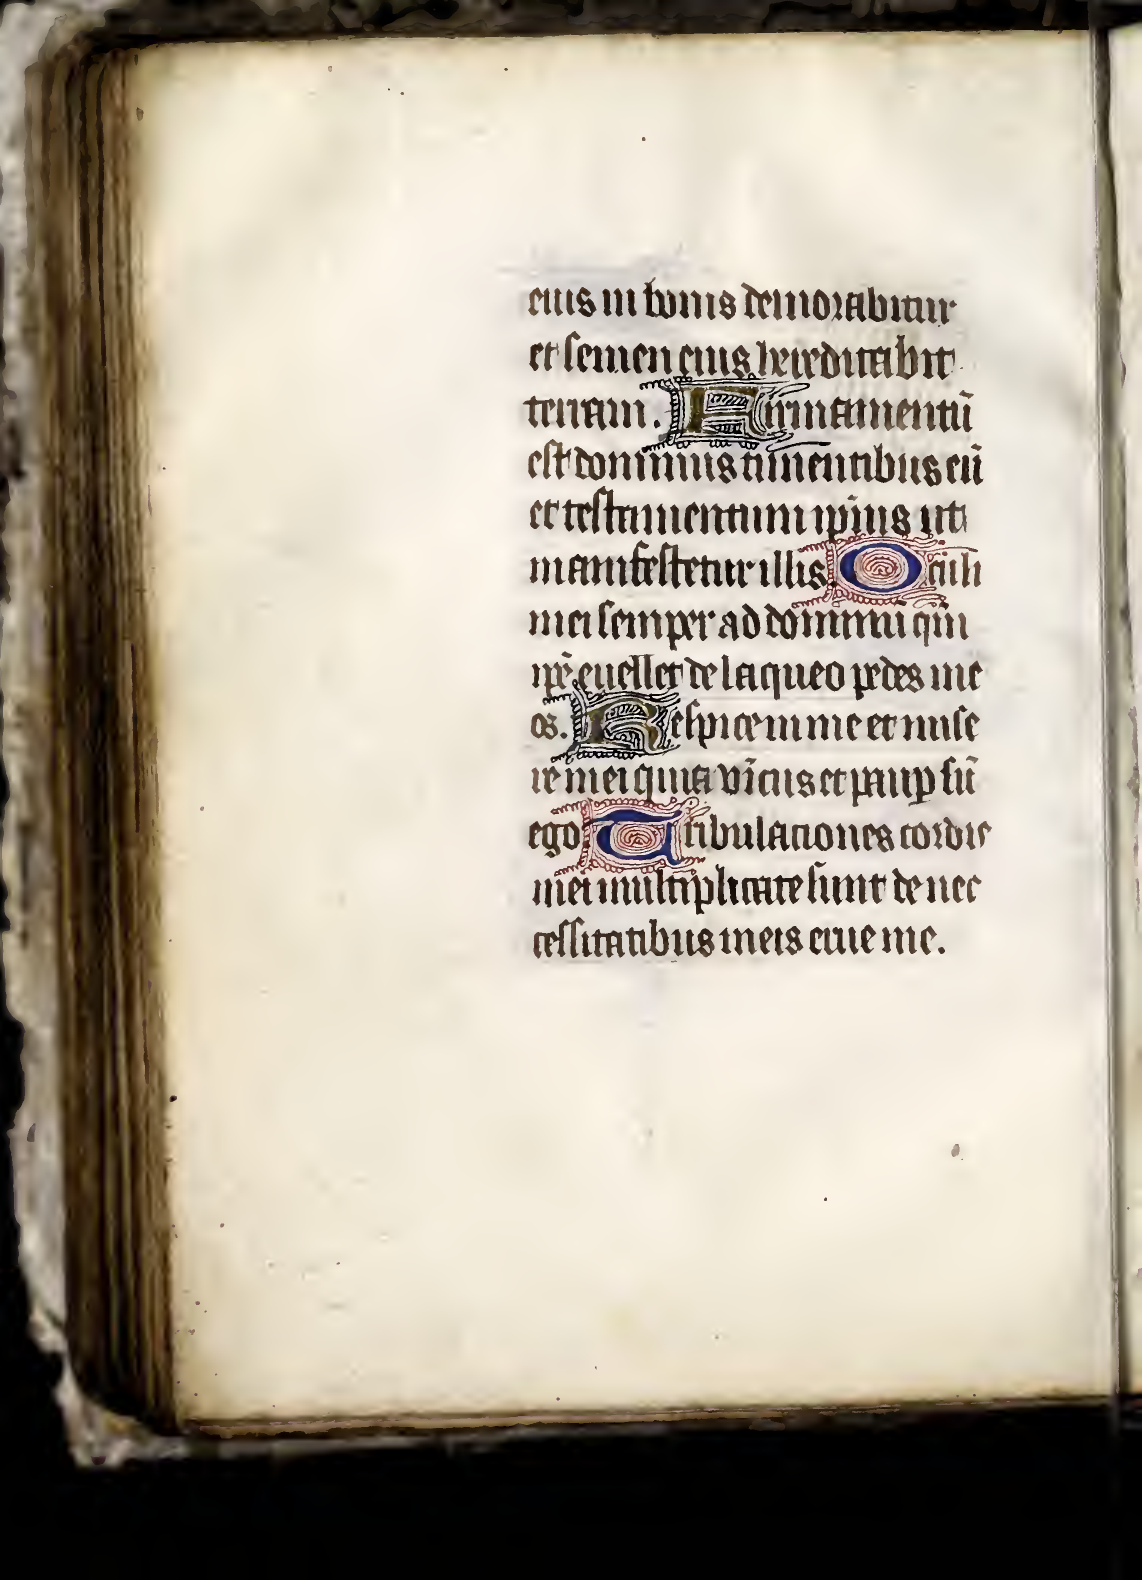 eius in bonis demorabitur
et semen eius hereditabit
terram. Firmamentū
est dominus timentibus eū
et testamentum ip̄ius ut
manifestetur illis. Oculi
mei semper ad dominū qm̄
ip̄e euellet de laqueo pedes me
os. Respice in me et mise
re mei quia vn̄icus et paup̱ sū
ego Tribulationes cordis
mei multiplicate sunt de nec
cessitatibus meis erue me.